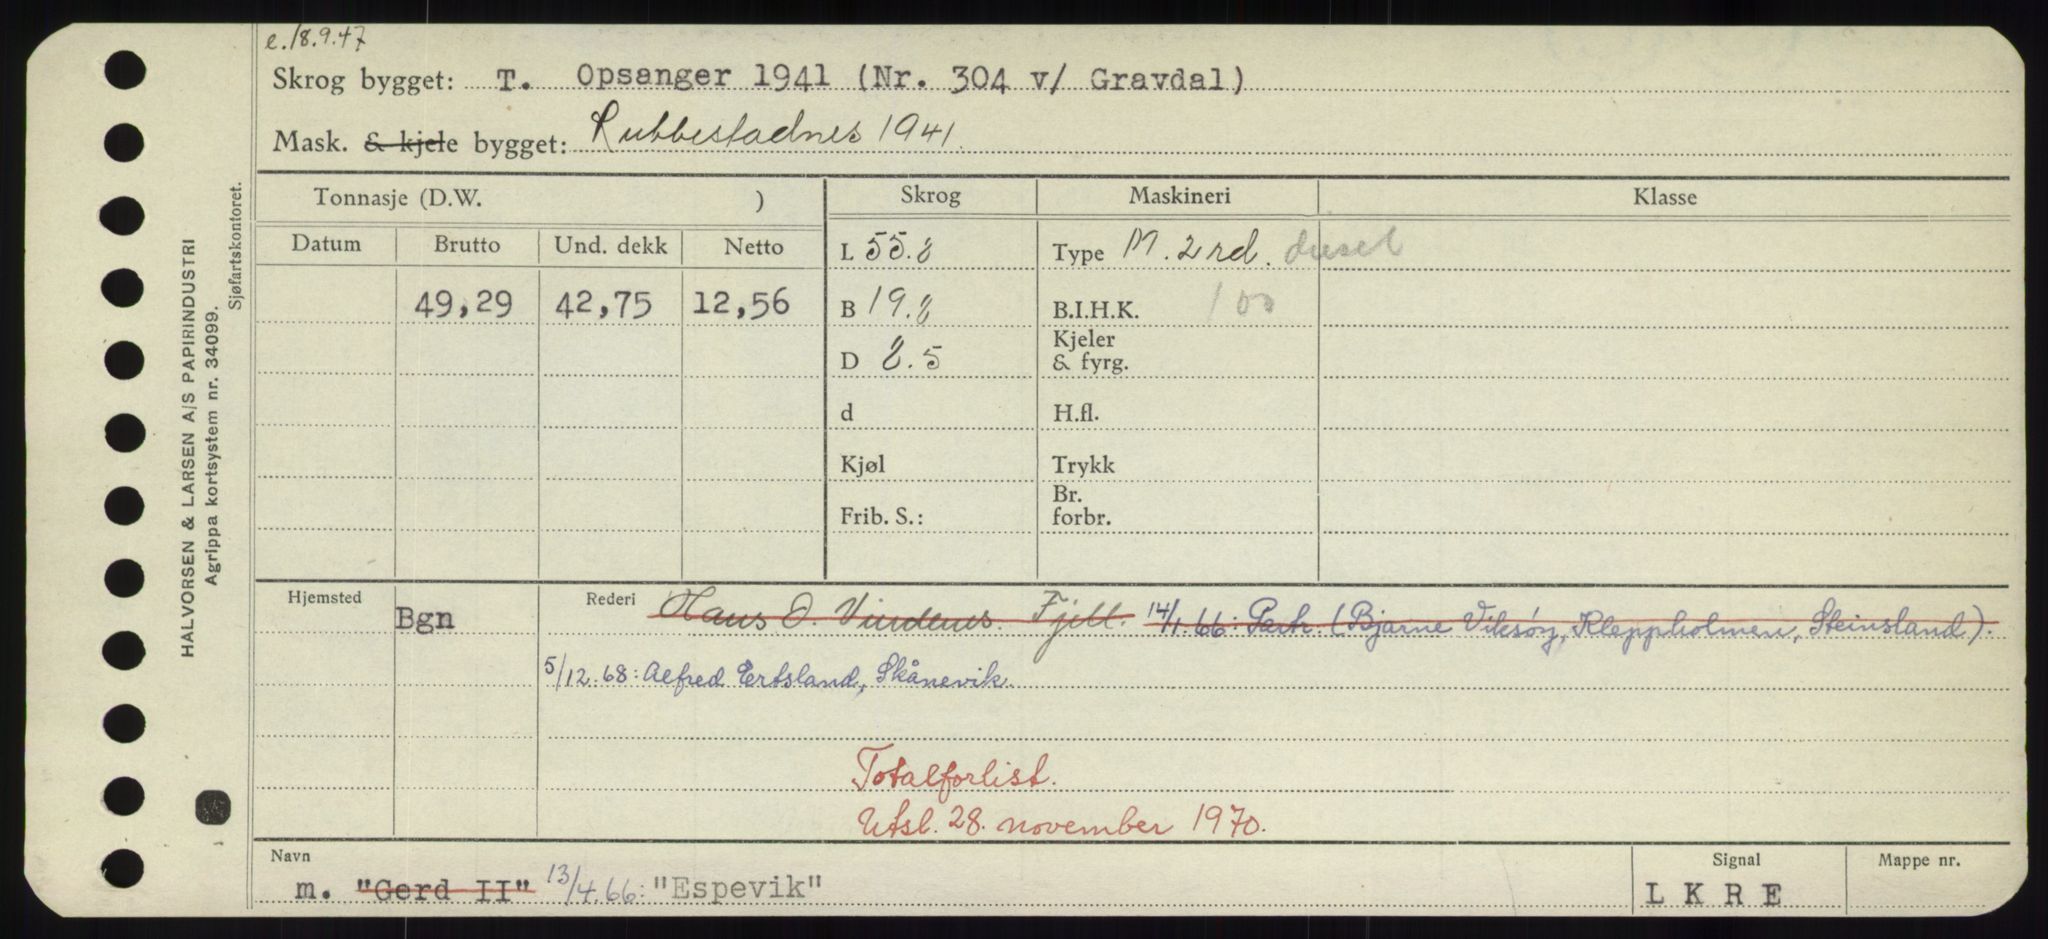 e. 18.9.47
Skrog bygget: T. Opsanger 1941 (Nr. 304 v/ Gravdal)
Mask. & kjele bygget: Rubbestadnes 1941.
Tonnasje (D.W. ) Skrog Maskineri Klasse
Datum Brutto Und. dekk Netto L 55.8 Type M. 2 rd. diesel
49,29 42,75 12,56 B 19.8 B.I.H.K. 100
D 8.5 Kjeler & fyrg.
d H.fl.
Kjøl Trykk
Frib. S.: Br. forbr.
Hjemsted Bgn Rederi Hans O. Vindenes Fjell. 14/1.66: Partr. (Bjarne Viksøy, Kleppholmen, Steinsland).
5/12.68: Alfred Ertsland, Skånevik.
Totalforlist.
Utsl. 28. november 1970.
Navn Signal Mappe nr.
m. "Gerd II" 13/4.66: "Espevik" L K R E
HALVORSEN & LARSEN A/S PAPIRINDUSTRI
Agrippa kortsystem nr. 34099.
Sjøfartskontoret.